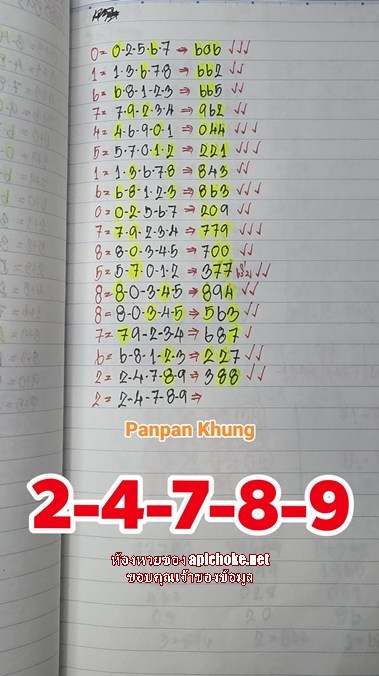 0 = 0-2-5-6-7 ⇒ 606 ✓✓✓
1 = 1-3-6-7-8 ⇒ 662 ✓✓
6 = 6-8-1-2-3 ⇒ 665 ✓✓
7 = 7-9-2-3-4 ⇒ 962 ✓✓
4 = 4-6-9-0-1 ⇒ 044 ✓✓✓
5 = 5-7-0-1-2 ⇒ 221 ✓✓✓
1 = 1-3-6-7-8 ⇒ 843 ✓✓
6 = 6-8-1-2-3 ⇒ 863 ✓✓✓
0 = 0-2-5-6-7 ⇒ 209 ✓✓
7 = 7-9-2-3-4 ⇒ 779 ✓✓✓
8 = 8-0-3-4-5 ⇒ 700 ✓✓
5 = 5-7-0-1-2 ⇒ 377 ✓✓
8 = 8-0-3-4-5 ⇒ 894 ✓✓
8 = 8-0-3-4-5 ⇒ 563 ✓✓
7 = 79-2-3-4 ⇒ 687 ✓
6 = 6-8-1-2-3 ⇒ 227 ✓✓
2 = 2-4-7-8-9 ⇒ 388 ✓✓
2 = 2-4-7-8-9 ⇒
Panpan Khung
2-4-7-8-9
ห้องหวยซอง aplchoke.net
ขอบคุณเจ้าของข้อมูล